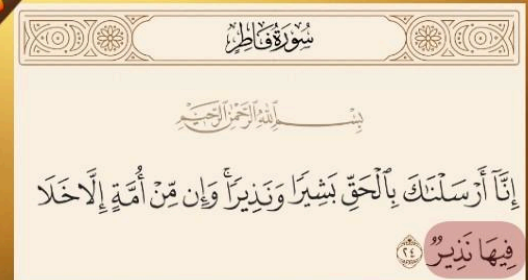 سُورَةُ فَاطِرٍ
بِسْمِ اللَّهِ الرَّحْمَٰنِ الرَّحِيمِ
إِنَّآ أَرْسَلْنَٰكَ بِٱلْحَقِّ بَشِيرًا وَنَذِيرًا ۚ وَإِن مِّنْ أُمَّةٍ إِلَّا خَلَا
فِيهَا نَذِيرٌ ٢٤